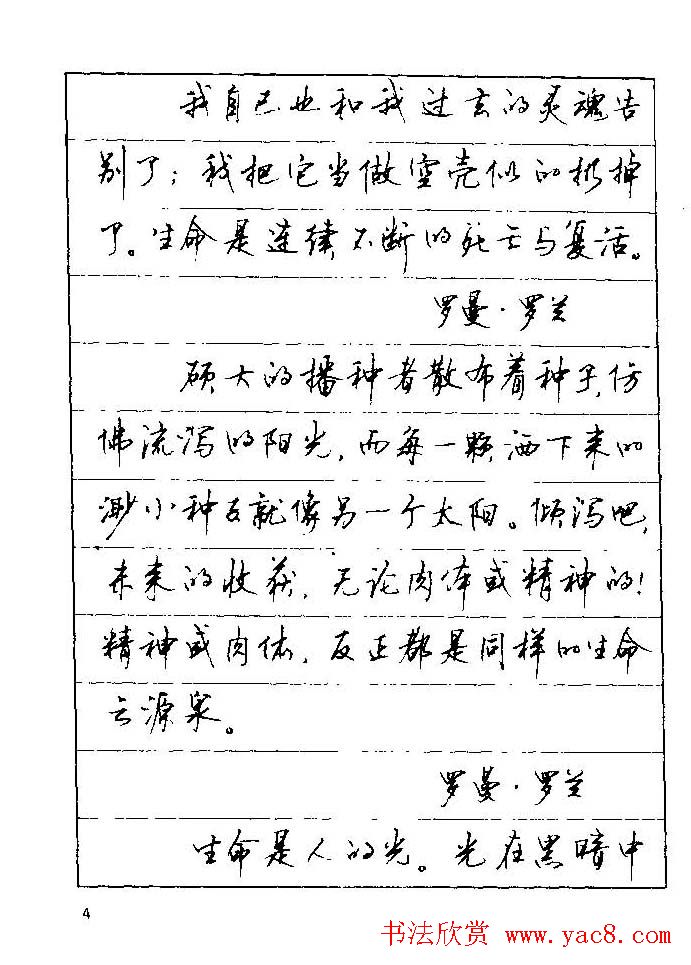 我自己也和我过去的灵魂告
别了；我把它当做空壳似的扔掉
了。生命是连续不断的死亡与复活。
罗曼·罗兰
硕大的播种者散布着种子,仿
佛流泻的阳光,而每一颗洒下来的
渺小种子就像另一个太阳。倾泻吧,
未来的收获,无论肉体或精神的!
精神或肉体,反正都是同样的生命
之源泉。
罗曼·罗兰
生命是人的光。光在黑暗中
4
书法欣赏 www.yac8.com